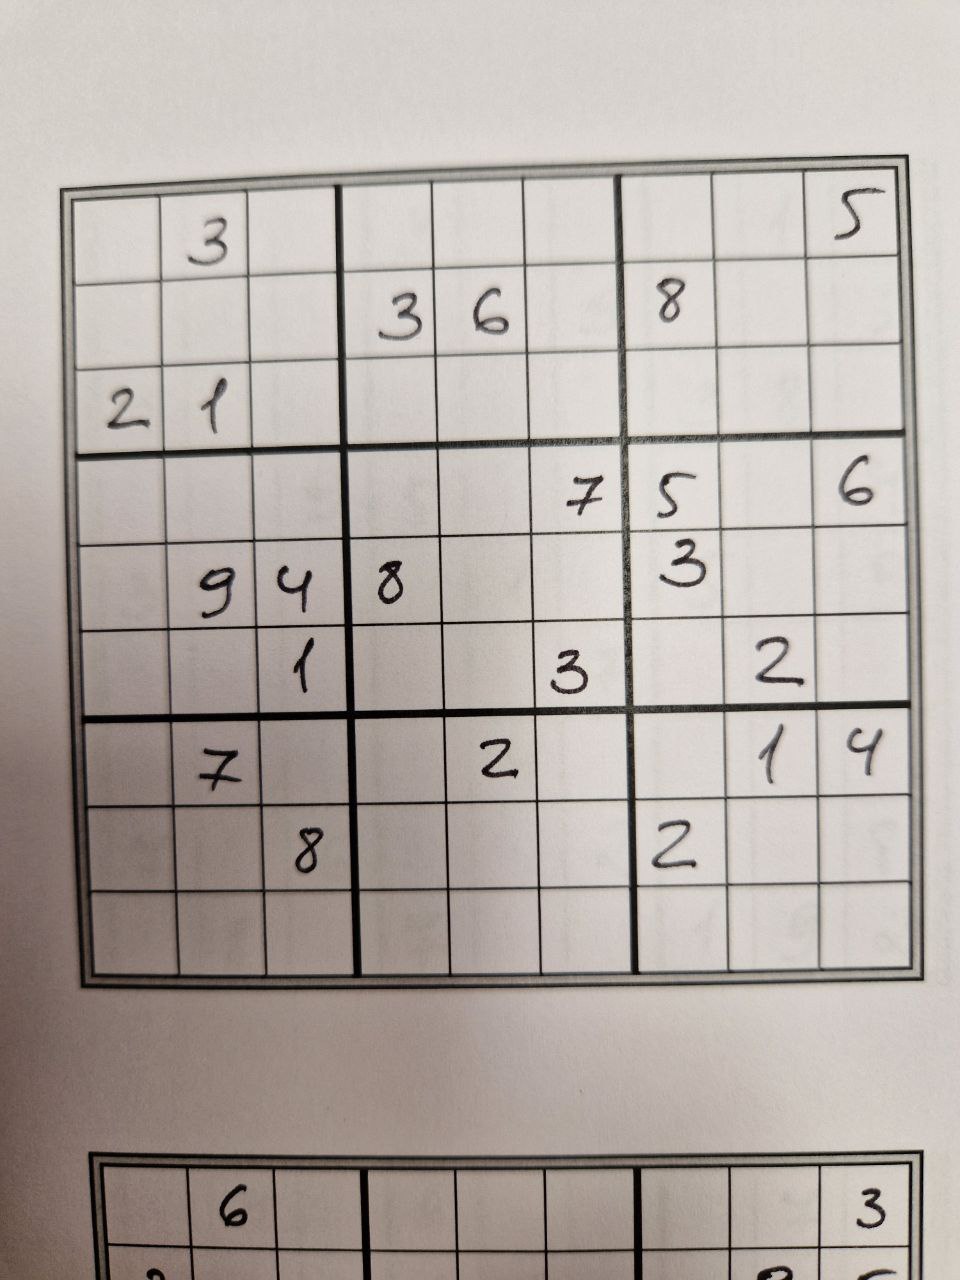 3 5
3 6 8
2 1
7 5 6
9 4 8 3
1 3 2
7 2 1 4
8 2
6 3